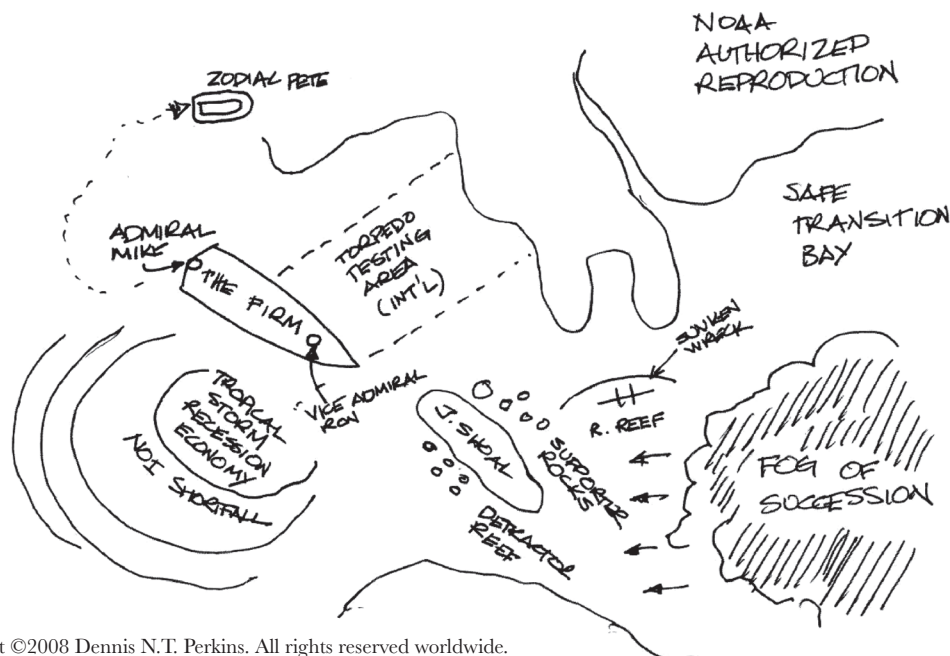 NOAA
AUTHORIZED
REPRODUCTION
ZODIAL PETE
SAFE
TRANSITION
BAY
ADMIRAL
MIKE
THE FIRM
TORPEDO
TESTING
AREA
(INT'L)
SUNKEN
WRECK
VICE ADMIRAL
RON
TROPICAL
STORM
RECESSION
ECONOMY
NOI SHORTFALL
J. SHOAL
SUPPORTER
ROCKS
R. REEF
FOG OF
SUCCESSION
DETRACTOR
REEF
t ©2008 Dennis N.T. Perkins. All rights reserved worldwide.